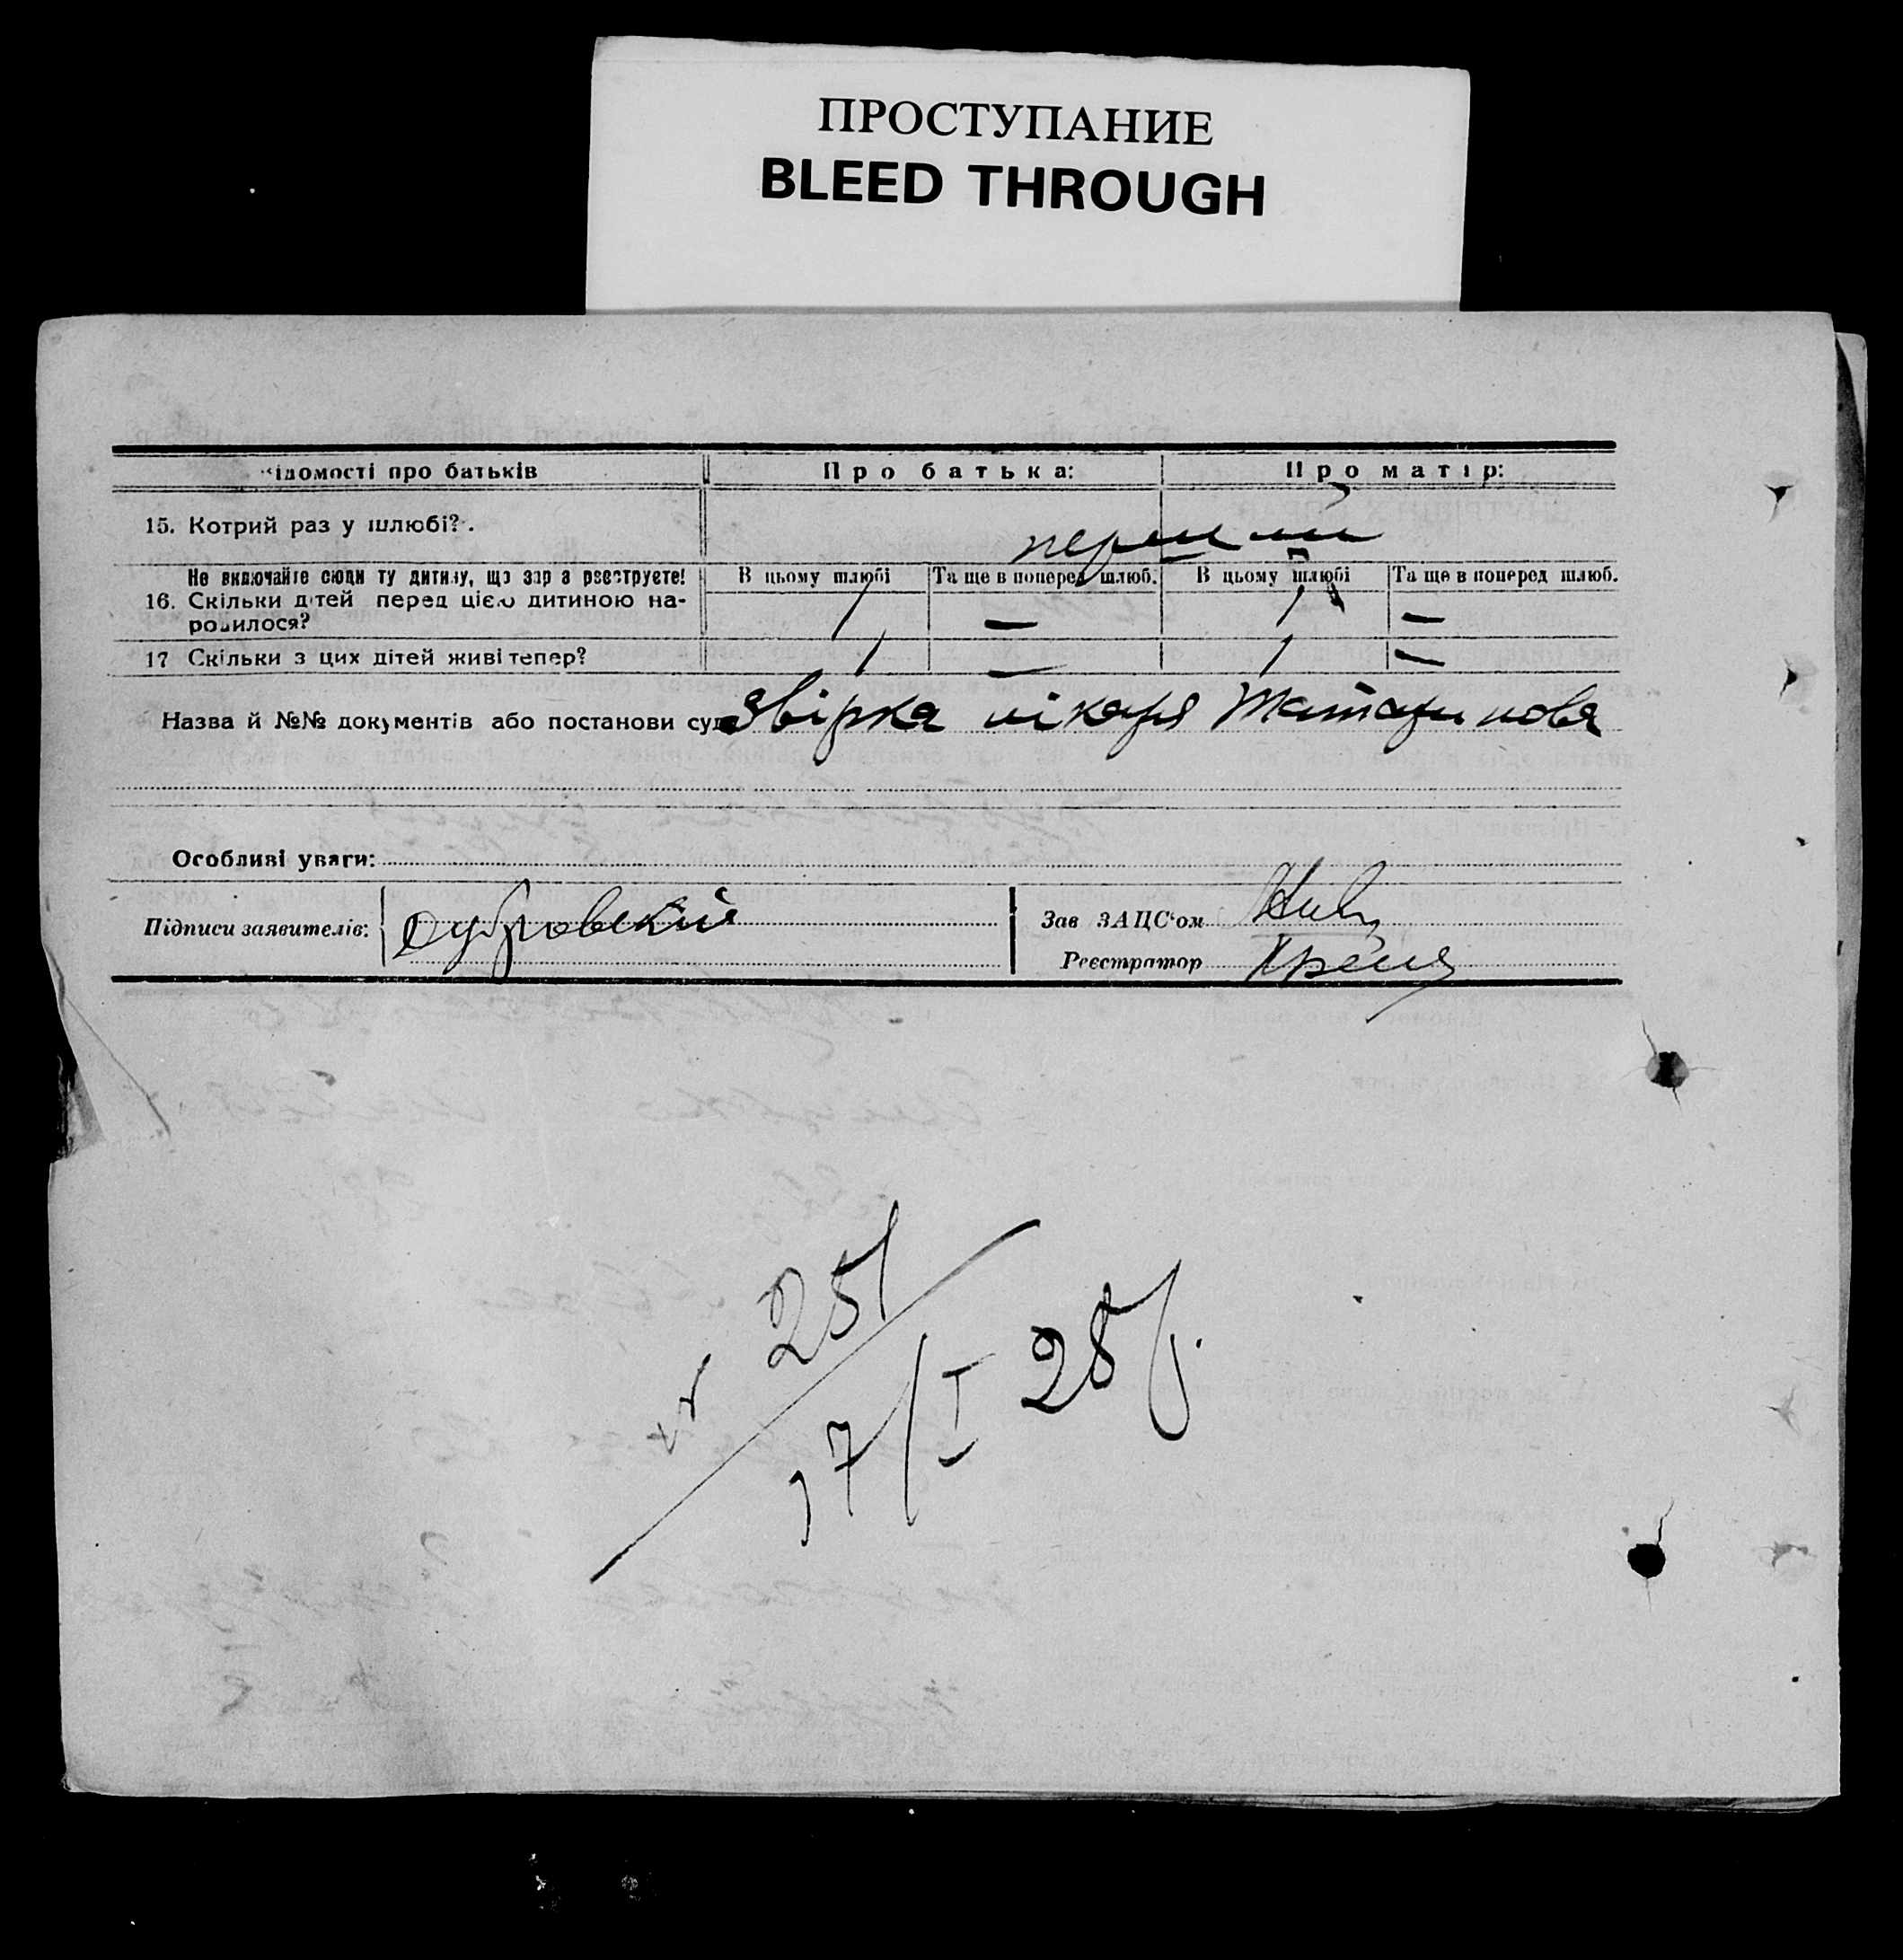 ПРОСТУПАНИЕ
BLEED THROUGH
ідомості про батьків Про батька: Про матір:
15. Котрий раз у шлюбі? перший
Не включайте сюди ту дитину, що зараз реєструєте! В цьому шлюбі Та ще в поперед шлюб. В цьому шлюбі Та ще в поперед шлюб.
16. Скільки дітей перед цією дитиною на-
родилося? 1 — 1 —
17 Скільки з цих дітей живі тепер? 1 — 1 —
Назва й №№ документів або постанови суд звірка лікаря Татаринова
Особливі уваги:
Підписи заявителів: Дубровский Зав ЗАЦС'ом
Реєстратор
251
17/I 25р.